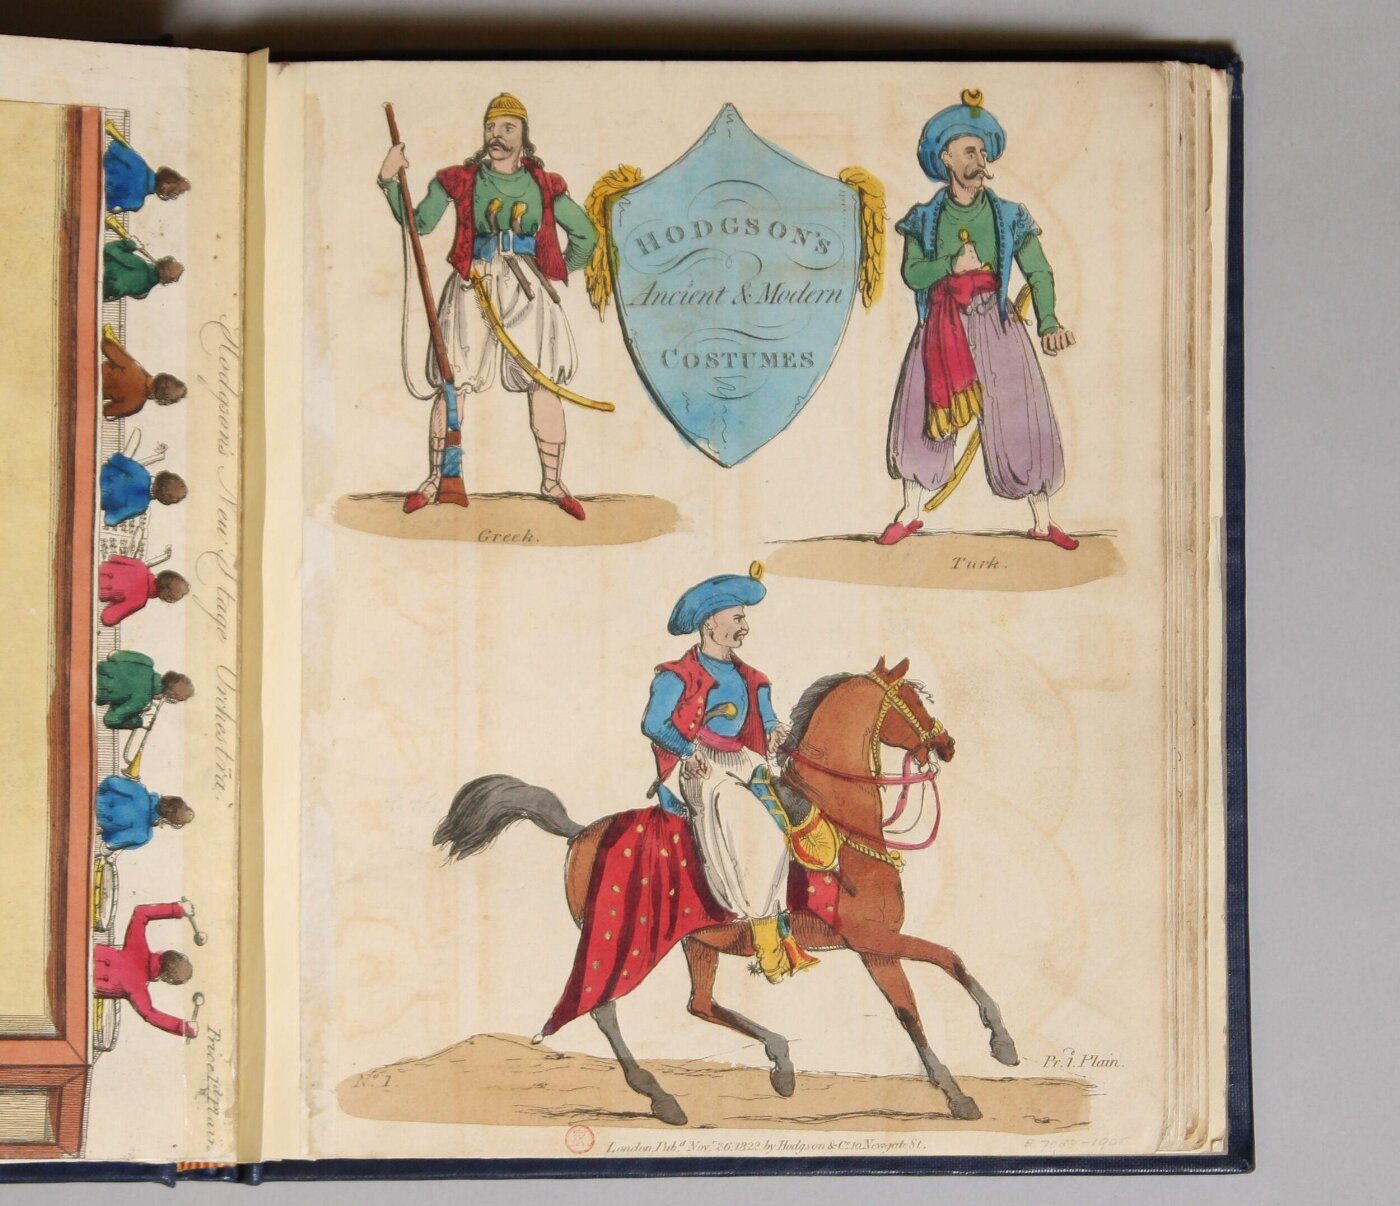 Hodgson's New Stage Orchestra.
Price 1d Plain
HODGSON'S
Ancient & Modern
COSTUMES
Greek.
Turk.
No. 1.
Pr. 1d. Plain.
London, Pubd. Novr. 26, 1822 by Hodgson & Co. 10 Newgate St.